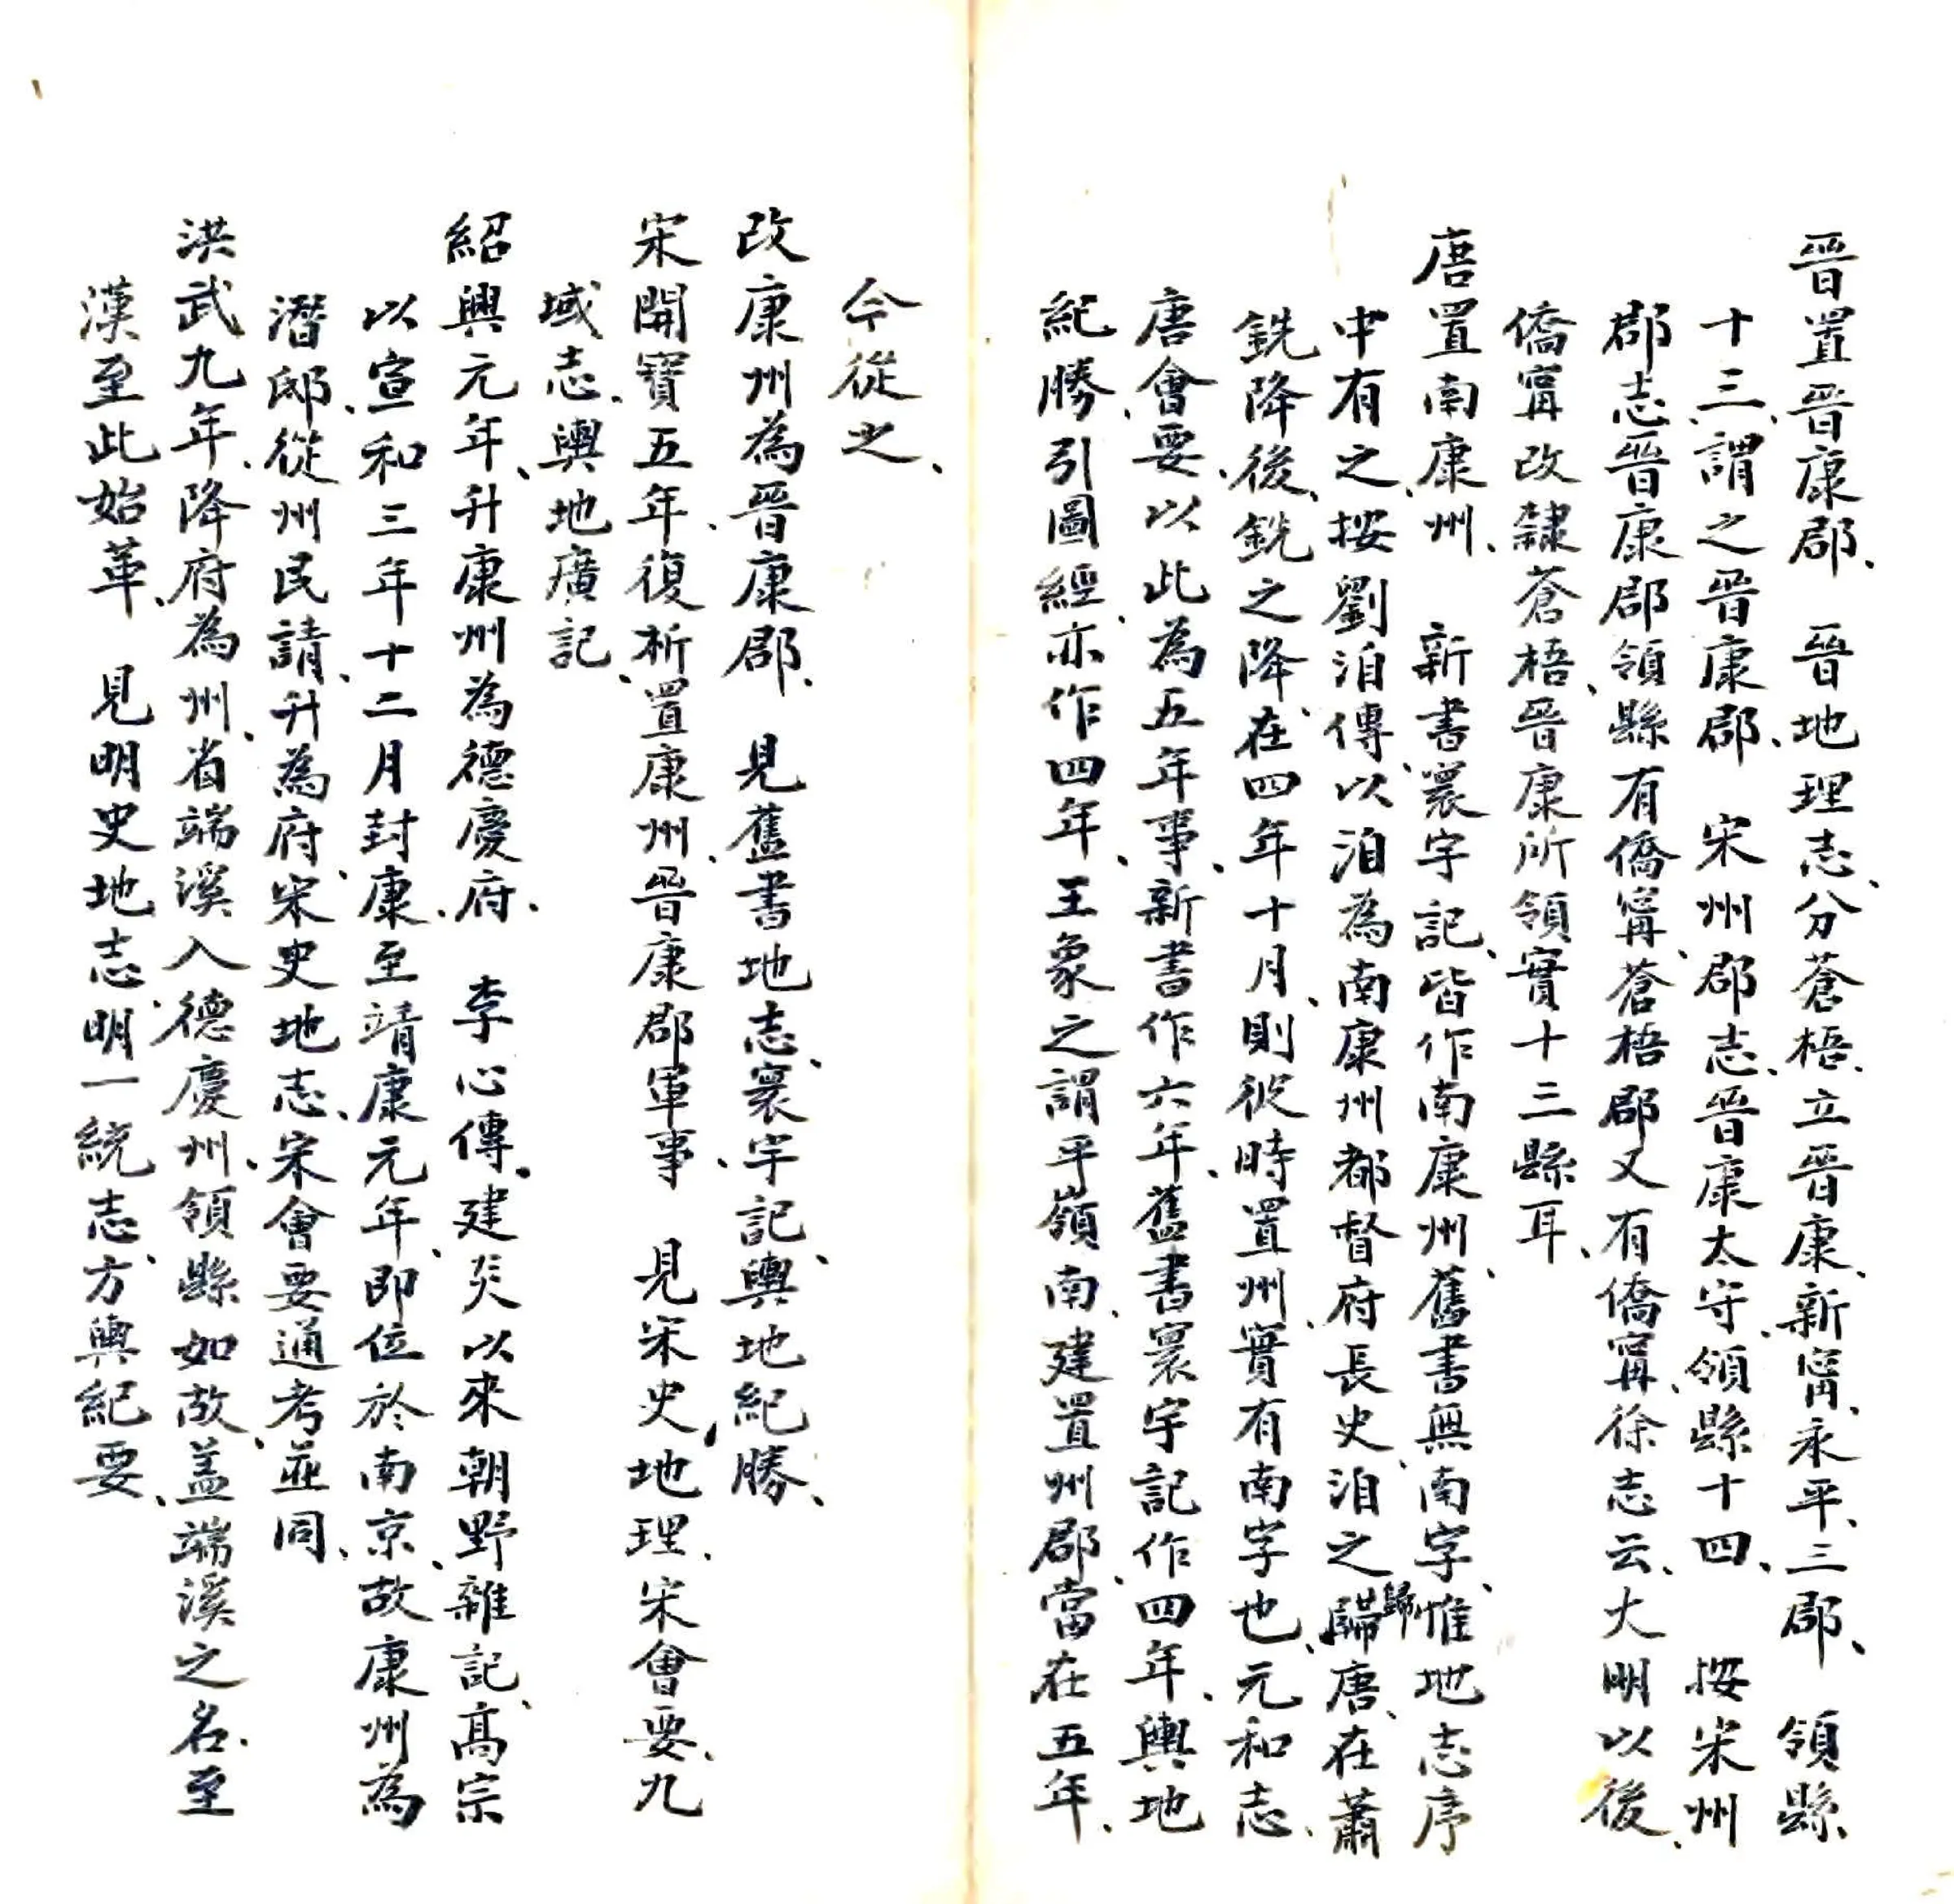 晉置晉康郡、　晉地理志、分蒼梧、立晉康、新甯、永平、三郡、　領縣、
十三、謂之晉康郡、　宋州郡志、晉康太守、領縣十四、　按宋州
郡志晉康郡領縣有僑甯、蒼梧郡又有僑甯、徐志云、大明以後、
僑甯改隸蒼梧、晉康所領實十三縣耳、
唐置南康州、　新書、寰宇記、皆作南康州、舊書無南字、惟地志序
中有之、按劉洎傳、以洎為南康州都督府長史、洎之歸歸唐、在蕭
銑降後、銑之降、在四年十月、則彼時置州、實有南字也、元和志、
唐會要、以此為五年事、新書作六年、舊書寰宇記作四年、輿地
紀勝、引圖經、亦作四年、王象之謂平嶺南、建置州郡、當在五年、
今從之、
改康州為晉康郡、　見舊書地志、寰宇記、輿地紀勝、
宋開寶五年、復析置康州、晉康郡軍事、　見宋史、地理、宋會要、九
域志、輿地廣記、
紹興元年、升康州為德慶府、　李心傳、建炎以來朝野雜記、高宗
以宣和三年十二月封康、至靖康元年、即位於南京、故康州為
潛邸、從州民請、升為府、宋史地志、宋會要通考並同、
洪武九年、降府為州、省端溪入德慶州、領縣如故、盖端溪之名、至
漢至此始革、　見明史地志、明一統志、方輿紀要、